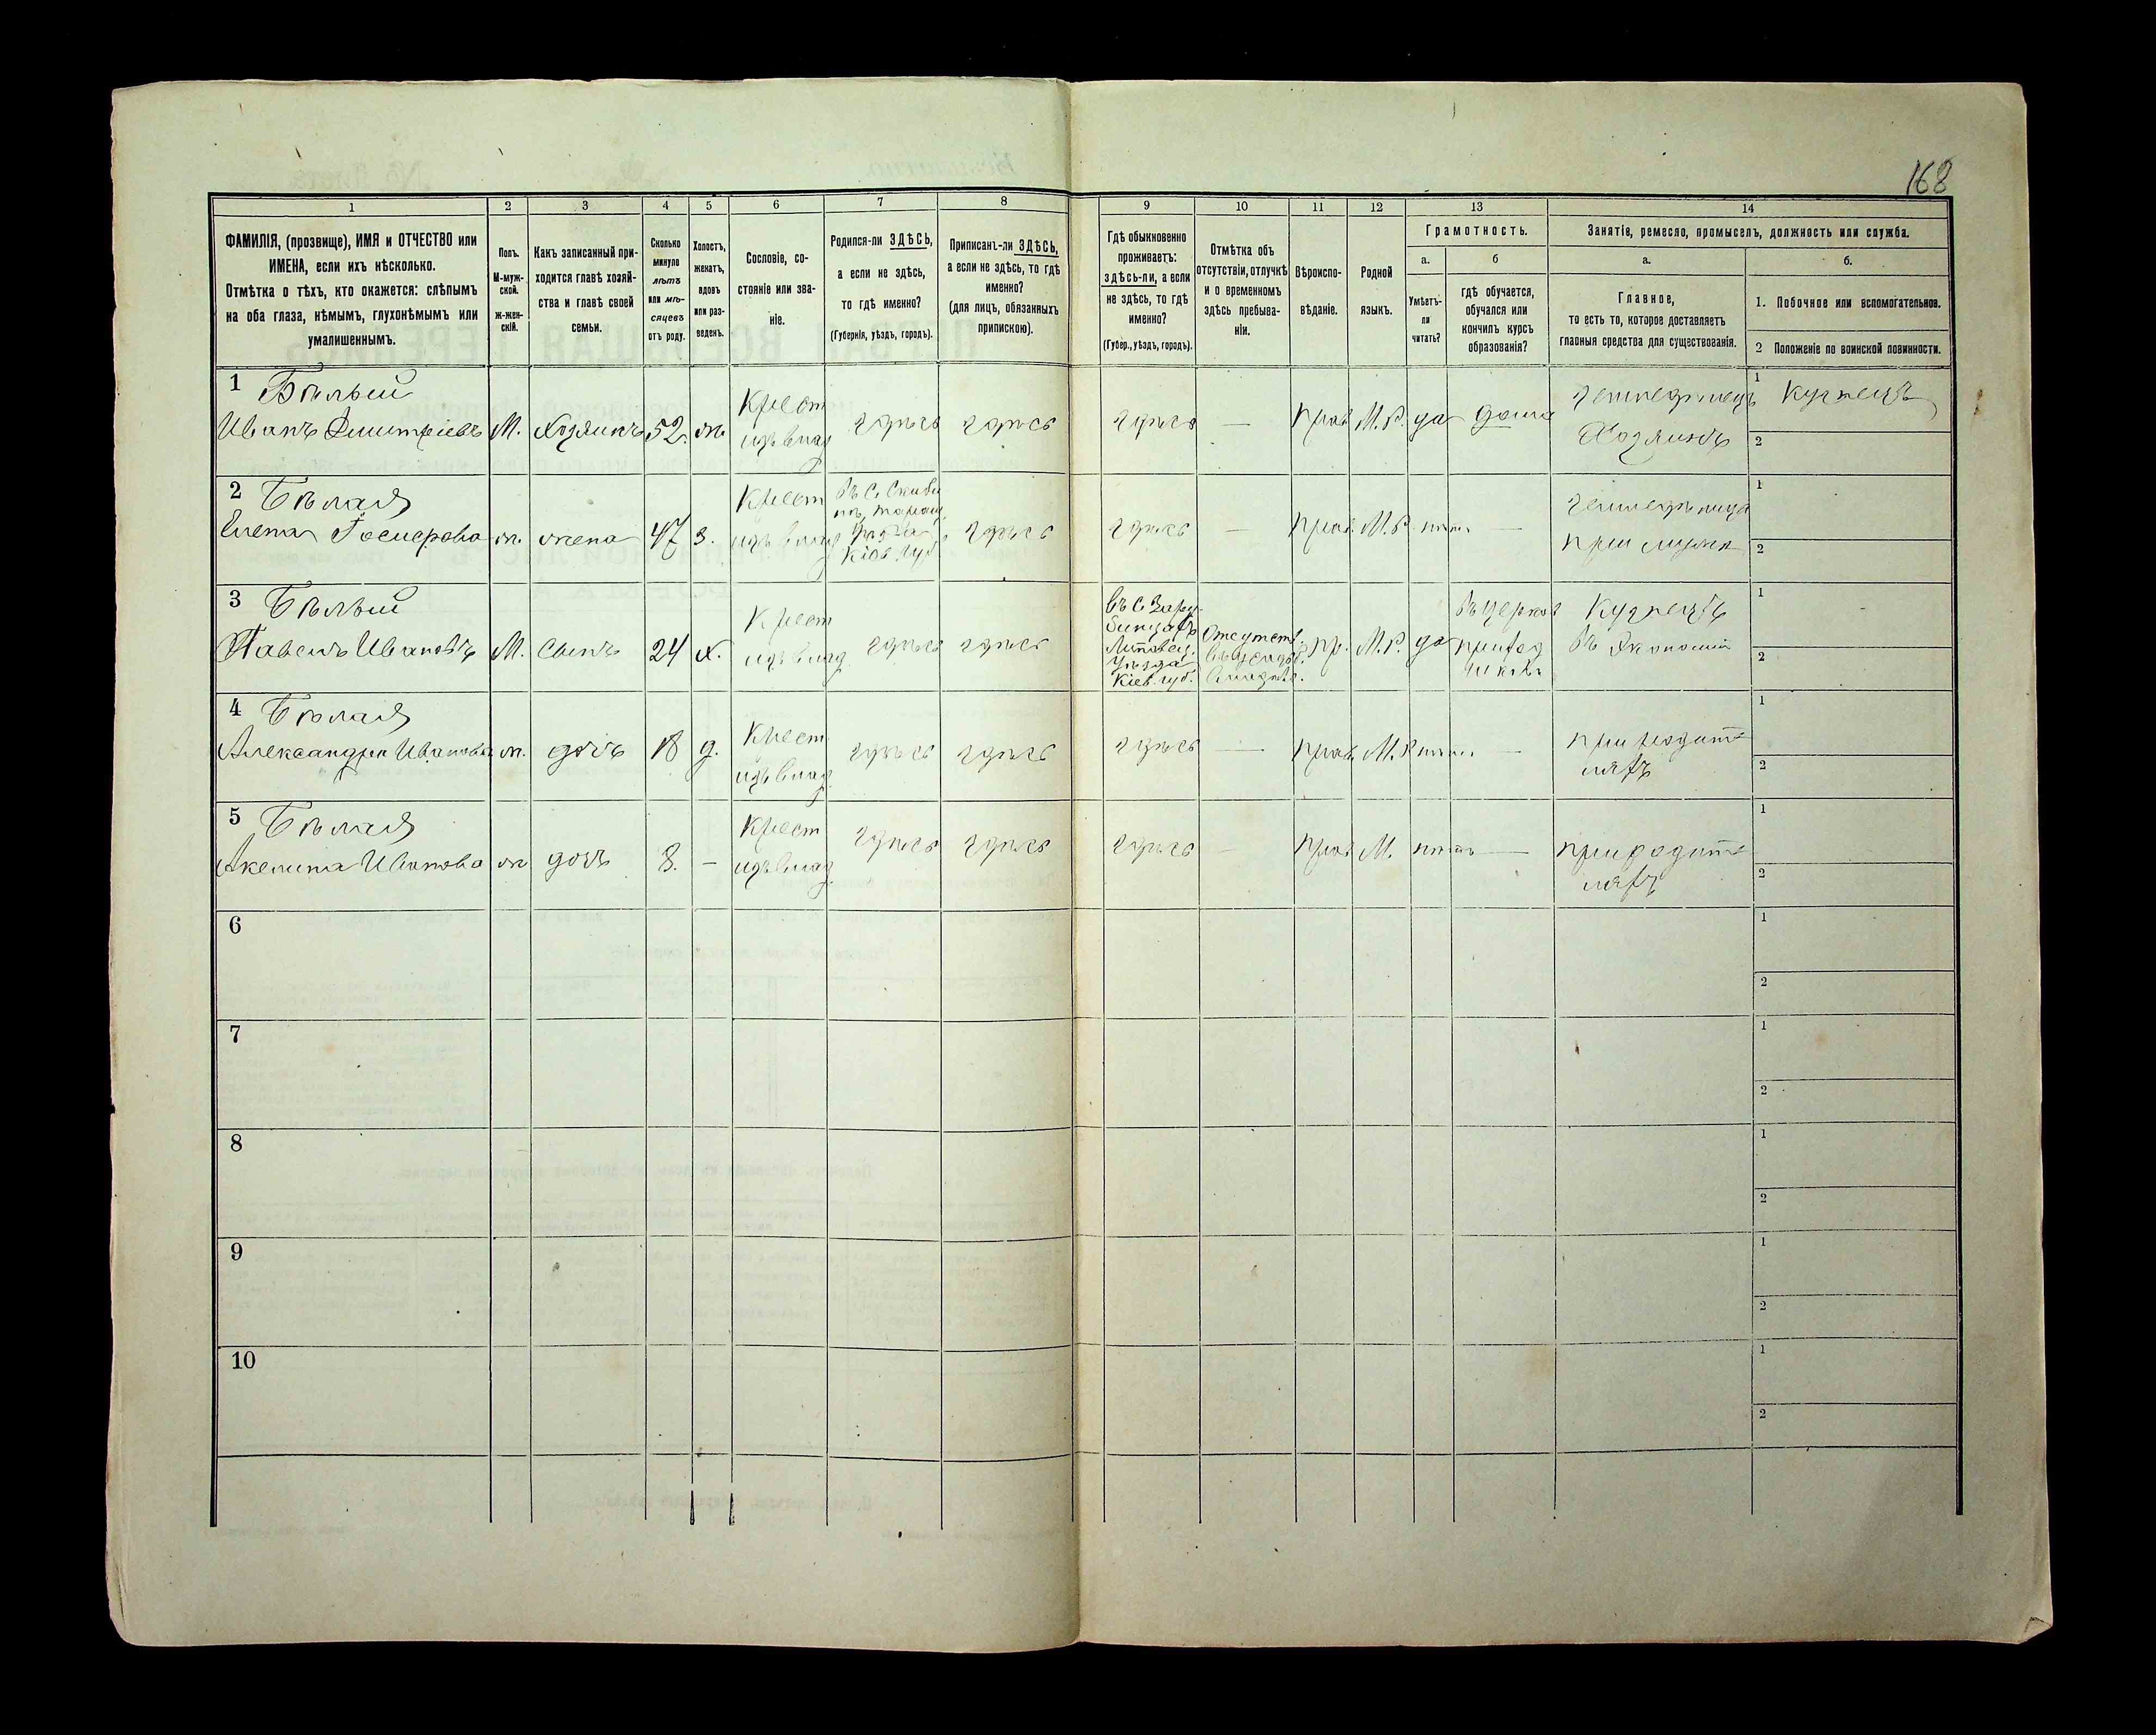 168
1
2
3
4
5
6
7
8
9
10
11
12
13
14
ФАМИЛІЯ, (прозвище), ИМЯ и ОТЧЕСТВО или
ИМЕНА, если ихъ нѣсколько.
Отмѣтка о тѣхъ, кто окажется: слѣпымъ
на оба глаза, нѣмымъ, глухонѣмымъ или
умалишеннымъ.
Полъ.
М-муж-
ской.
ж-жен-
скій.
Какъ записанный при-
ходится главѣ хозяй-
ства и главѣ своей
семьи.
Сколько
минуло
лѣтъ
или мѣ-
сяцевъ
отъ роду.
Холостъ,
женатъ,
вдовъ
или раз-
веденъ.
Сословіе, со-
стояніе или зва-
ніе.
Родился-ли ЗДѢСЬ,
а если не здѣсь,
то гдѣ именно?
(Губернія, уѣздъ, городъ).
Приписанъ-ли ЗДѢСЬ,
а если не здѣсь, то гдѣ
именно?
(для лицъ, обязанныхъ
припискою).
Гдѣ обыкновенно
проживаетъ:
здѣсь-ли, а если
не здѣсь, то гдѣ
именно?
(Губер., уѣздъ, городъ).
Отмѣтка объ
отсутствіи, отлучкѣ
и о временномъ
здѣсь пребыва-
ніи.
Вѣроиспо-
вѣданіе.
Родной
языкъ.
Грамотность.
а.
Умѣетъ-
ли
читать?
б
гдѣ обучается,
обучался или
кончилъ курсъ
образованія?
Занятіе, ремесло, промыселъ, должность или служба.
а.
Главное,
то есть то, которое доставляетъ
главныя средства для существованія.
б.
1. Побочное или вспомогательное.
2 Положеніе по воинской повинности.
1 Бѣлый
Иванъ Дмитріевъ М. Хозяинъ 52. ж. Крест изъ влад здѣсь здѣсь здѣсь — прав М.Р. да дома земледѣлецъ Хозяинъ 1 Кузнецъ
2
2 Бѣлая
Елена ж. жена 47 з. Крест изъ влад Въ С. уѣзда Кіев. губ. здѣсь здѣсь — прав. М.Р нѣтъ — земледѣлица при мужѣ 1
2
3 Бѣлый
Павелъ Ивановъ М. Сынъ 24 х. Крест изъ влад здѣсь здѣсь въ С. Липовец. уѣзда Кіев. губ. Отсутств. пр. М.Р. да въ церков приход школѣ Кузнецъ въ Экономіи 1
2
4 Бѣлая
Александра Иванова ж. дочь 18 д. Крест изъ влад здѣсь здѣсь здѣсь — прав. М.Р нѣтъ — при родителяхъ 1
2
5 Бѣлая
Акелина Иванова ж дочь 8. — Крест изъ влад здѣсь здѣсь здѣсь — прав М. нѣтъ — при родителяхъ 1
2
6
1
2
7
1
2
8
1
2
9
1
2
10
1
2